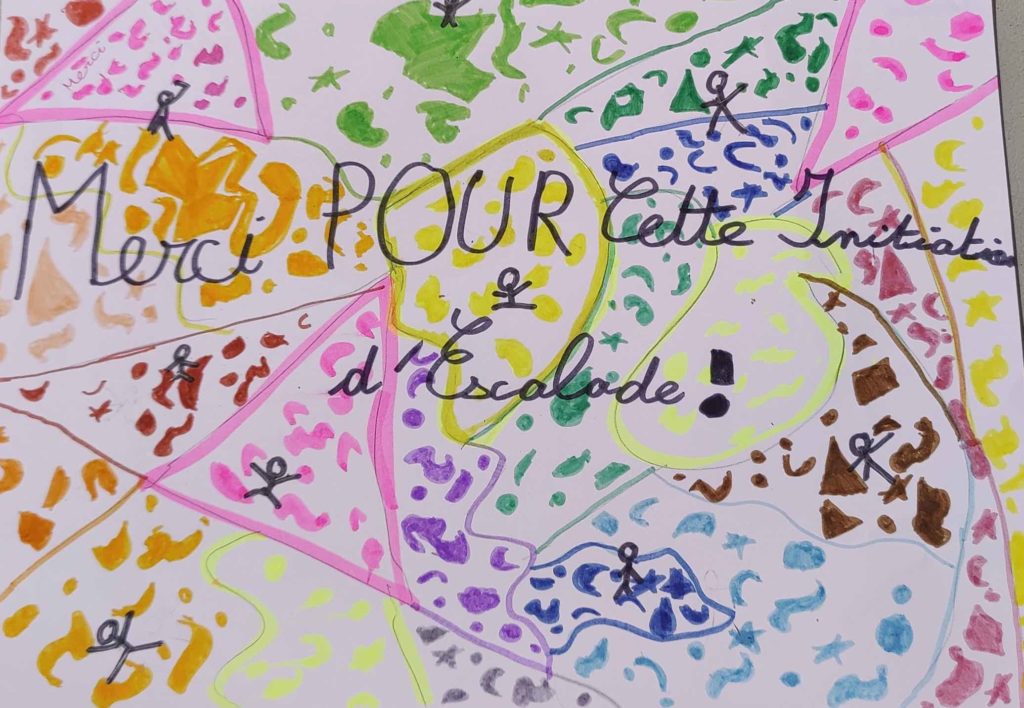 Merci
Merci POUR Cette Initiation
d'Escalade !